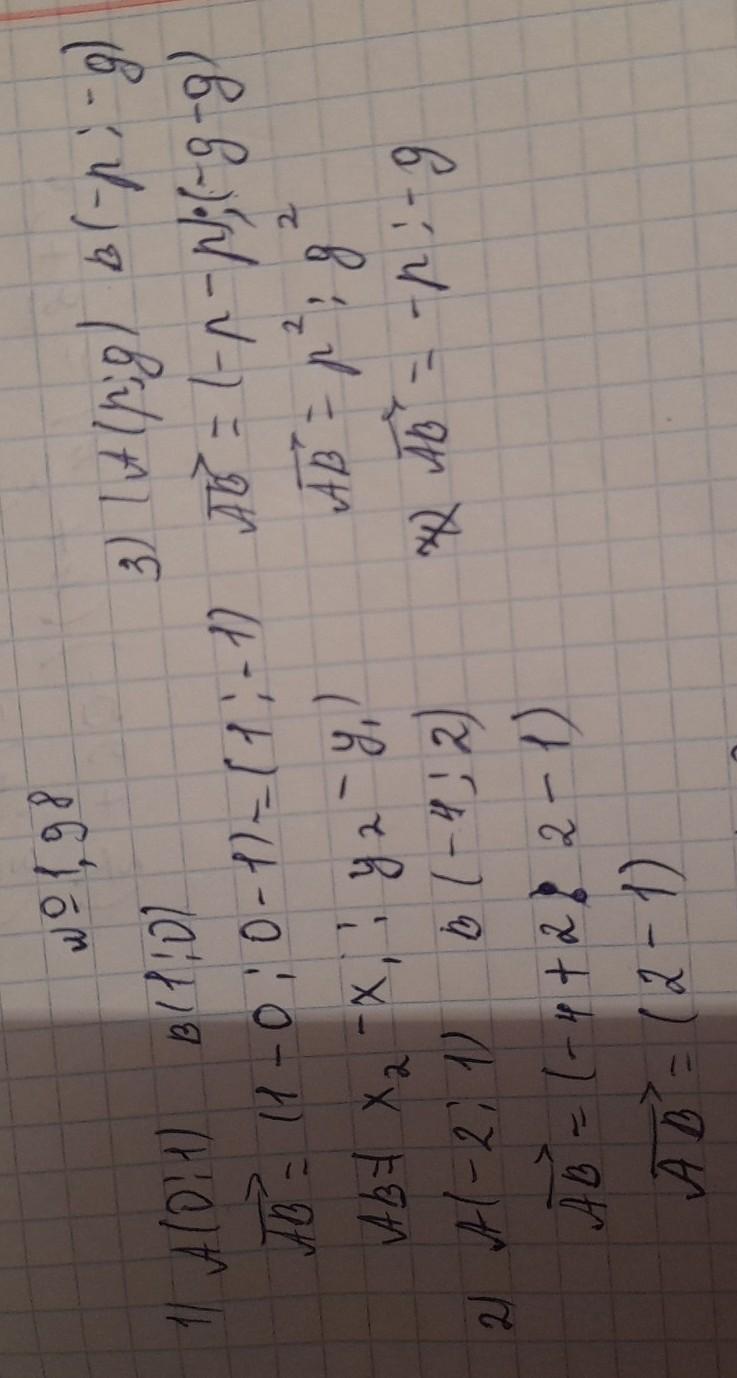 №1,98
1) A(0;1) B(1;0)
AB = (1-0; 0-1) = (1; -1)
AB = x₂ - x₁; y₂ - y₁)
2) A(-2; 1) B(-4; 2)
AB = (-4+2; 2-1)
AB = (2-1)
3) (A(p;g) B(-p; -g)
AB = (-p-p); (-g-g)
AB = p²; g²
AB = -p; -g